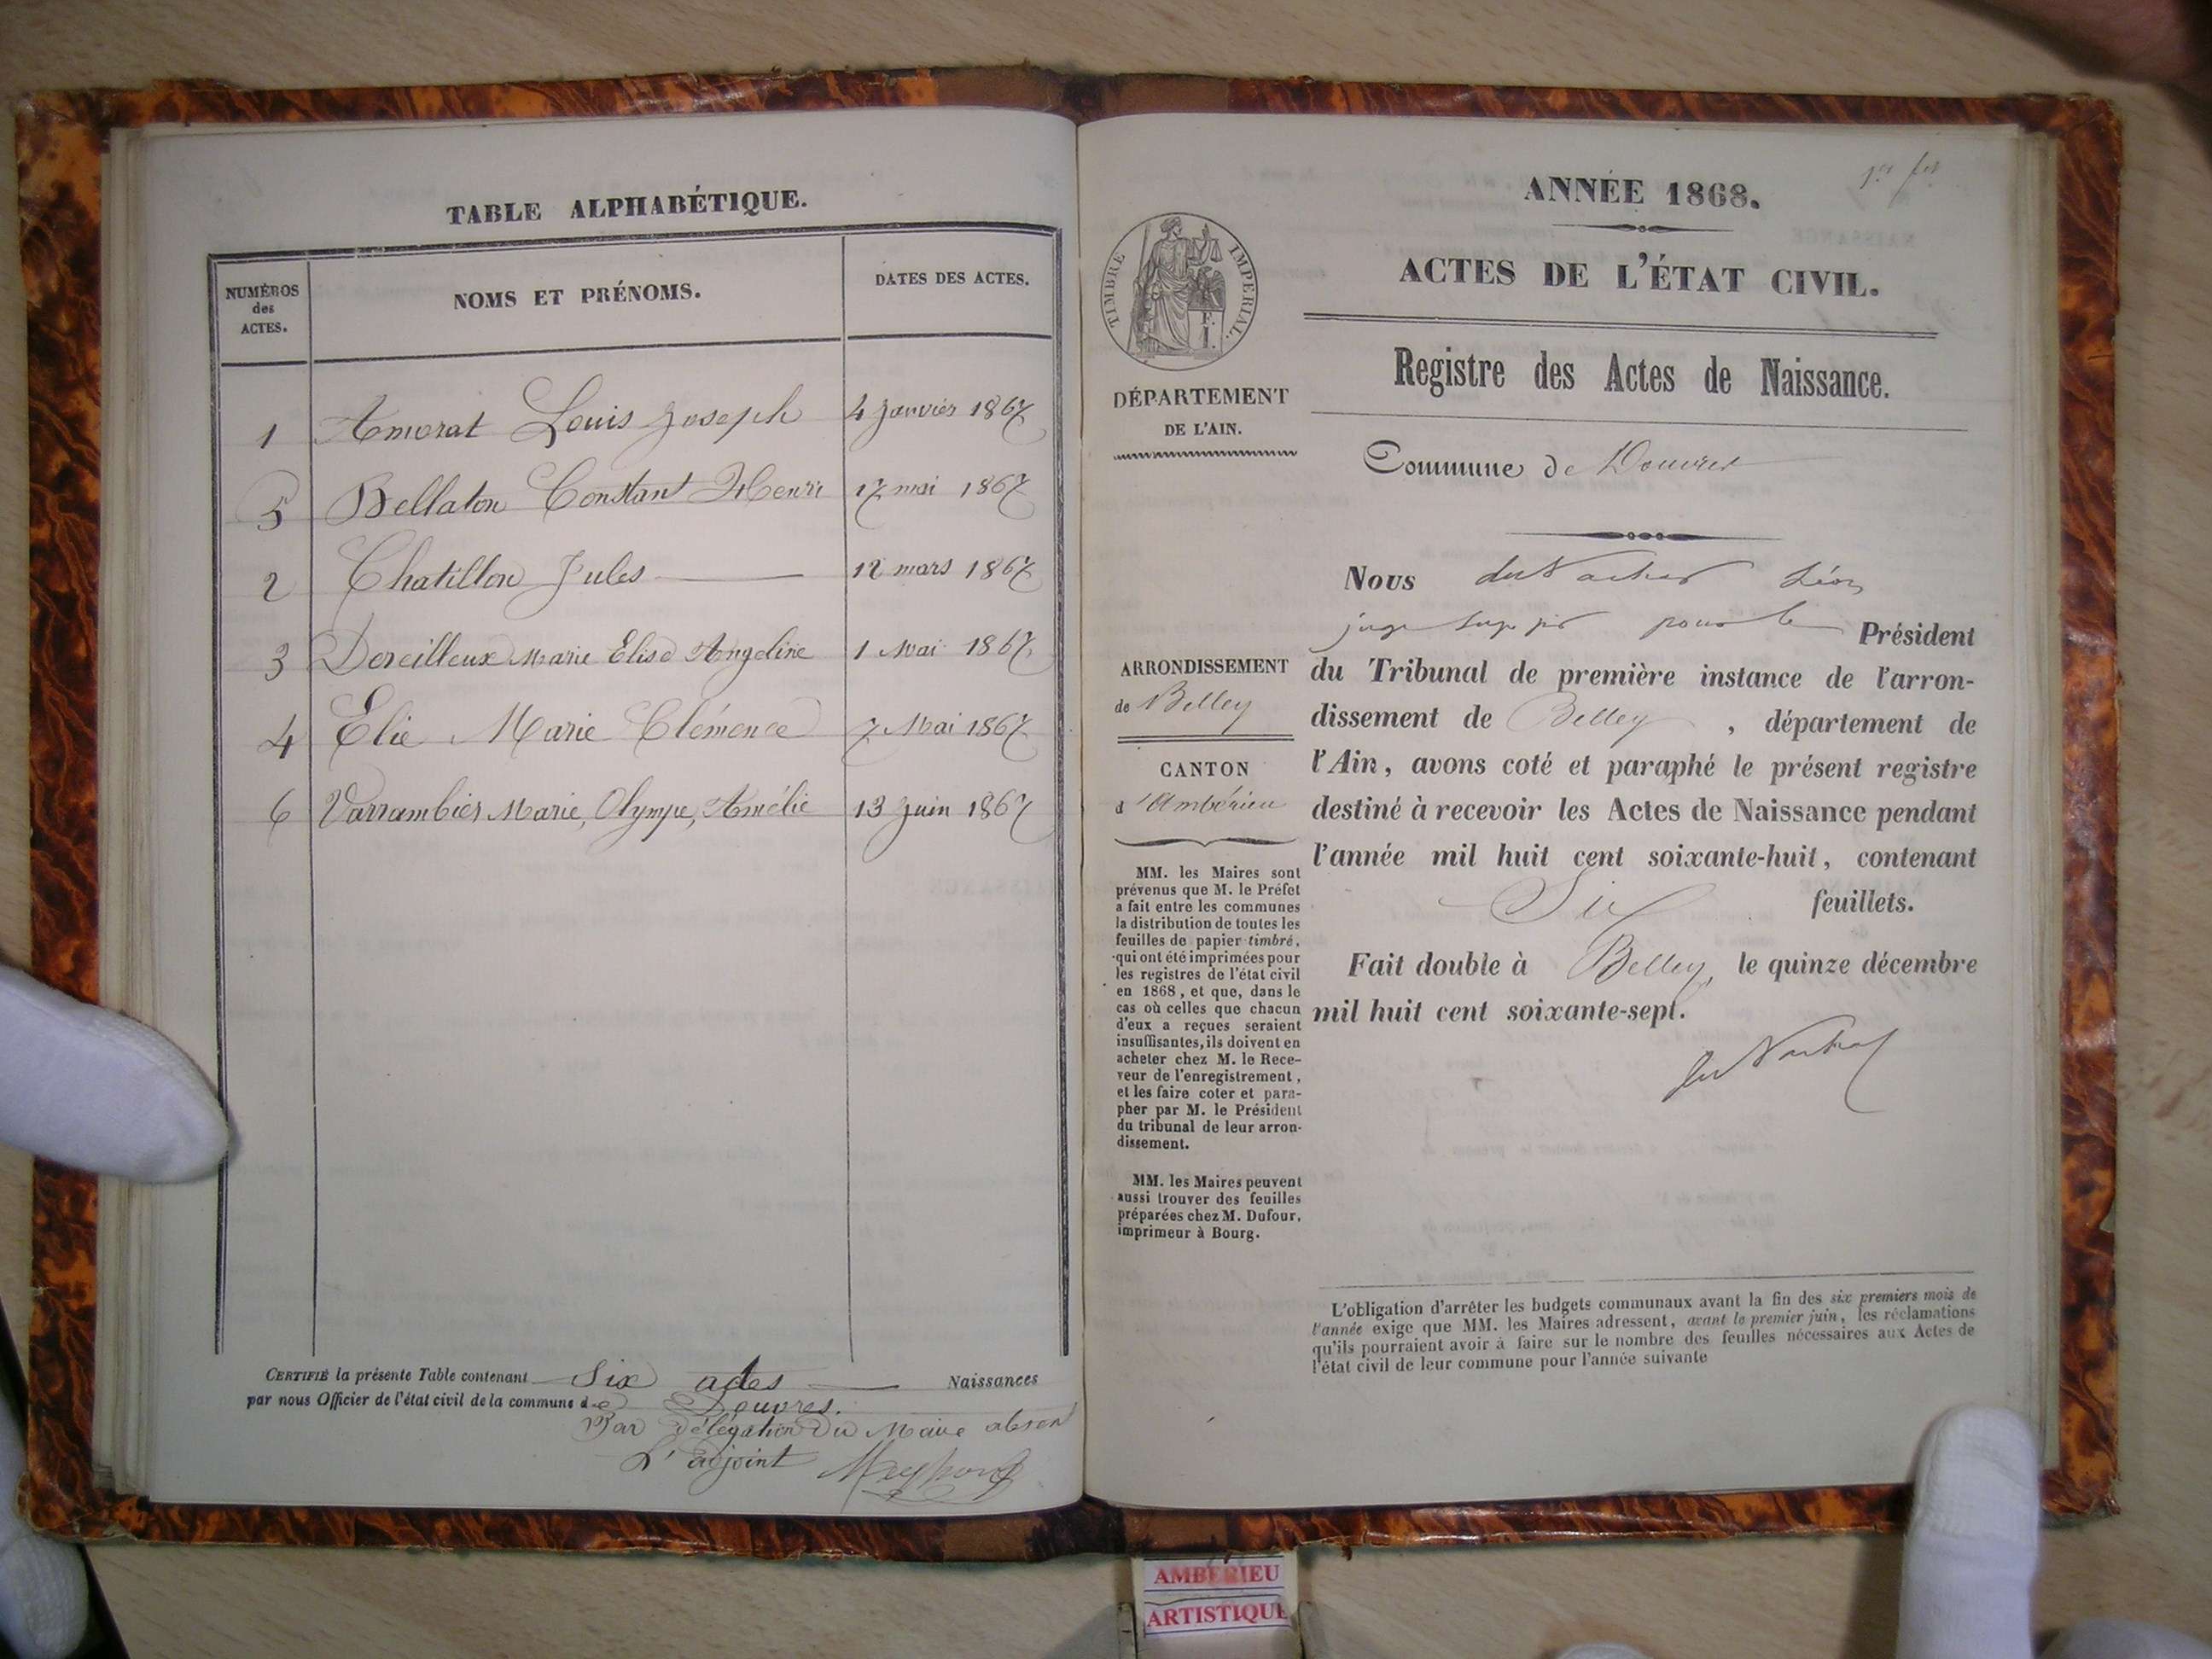 TABLE ALPHABÉTIQUE.
NUMÉROS des ACTES. NOMS ET PRÉNOMS. DATES DES ACTES.
1 Amorat Louis Joseph 4 Janvier 1867
5 Bellaton Constant Henri 17 mai 1867
2 Chatillon Jules 12 mars 1867
3 Dereilleux Marie Elise Angeline 1 Mai 1867
4 Elie Marie Clémence 7 Mai 1867
6 Varrambier Marie, Olympe, Amélie 13 Juin 1867
CERTIFIÉ la présente Table contenant Six actes Naissances
par nous Officier de l'état civil de la commune de Douvres.
Par Délégation Du Maire absent
L'adjoint
1er
ANNÉE 1868.
ACTES DE L'ÉTAT CIVIL.
Registre des Actes de Naissance.
Commune de Douvres
TIMBRE IMPÉRIAL.
F. I.
DÉPARTEMENT
DE L'AIN.
ARRONDISSEMENT
de Belley
CANTON
d'Ambérieu
MM. les Maires sont
prévenus que M. le Préfet
a fait entre les communes
la distribution de toutes les
feuilles de papier timbré,
qui ont été imprimées pour
les registres de l'état civil
en 1868, et que, dans le
cas où celles que chacun
d'eux a reçues seraient
insuffisantes, ils doivent en
acheter chez M. le Rece-
veur de l'enregistrement,
et les faire coter et para-
pher par M. le Président
du tribunal de leur arron-
dissement.
MM. les Maires peuvent
aussi trouver des feuilles
préparées chez M. Dufour,
imprimeur à Bourg.
Nous Léon
juge pour le Président
du Tribunal de première instance de l'arron-
dissement de Belley, département de
l'Ain, avons coté et paraphé le présent registre
destiné à recevoir les Actes de Naissance pendant
l'année mil huit cent soixante-huit, contenant
Six feuillets.
Fait double à Belley, le quinze décembre
mil huit cent soixante-sept.
L'obligation d'arrêter les budgets communaux avant la fin des six premiers mois de
l'année exige que MM. les Maires adressent, avant le premier juin, les réclamations
qu'ils pourraient avoir à faire sur le nombre des feuilles nécessaires aux Actes de
l'état civil de leur commune pour l'année suivante
AMBERIEU
ARTISTIQUE